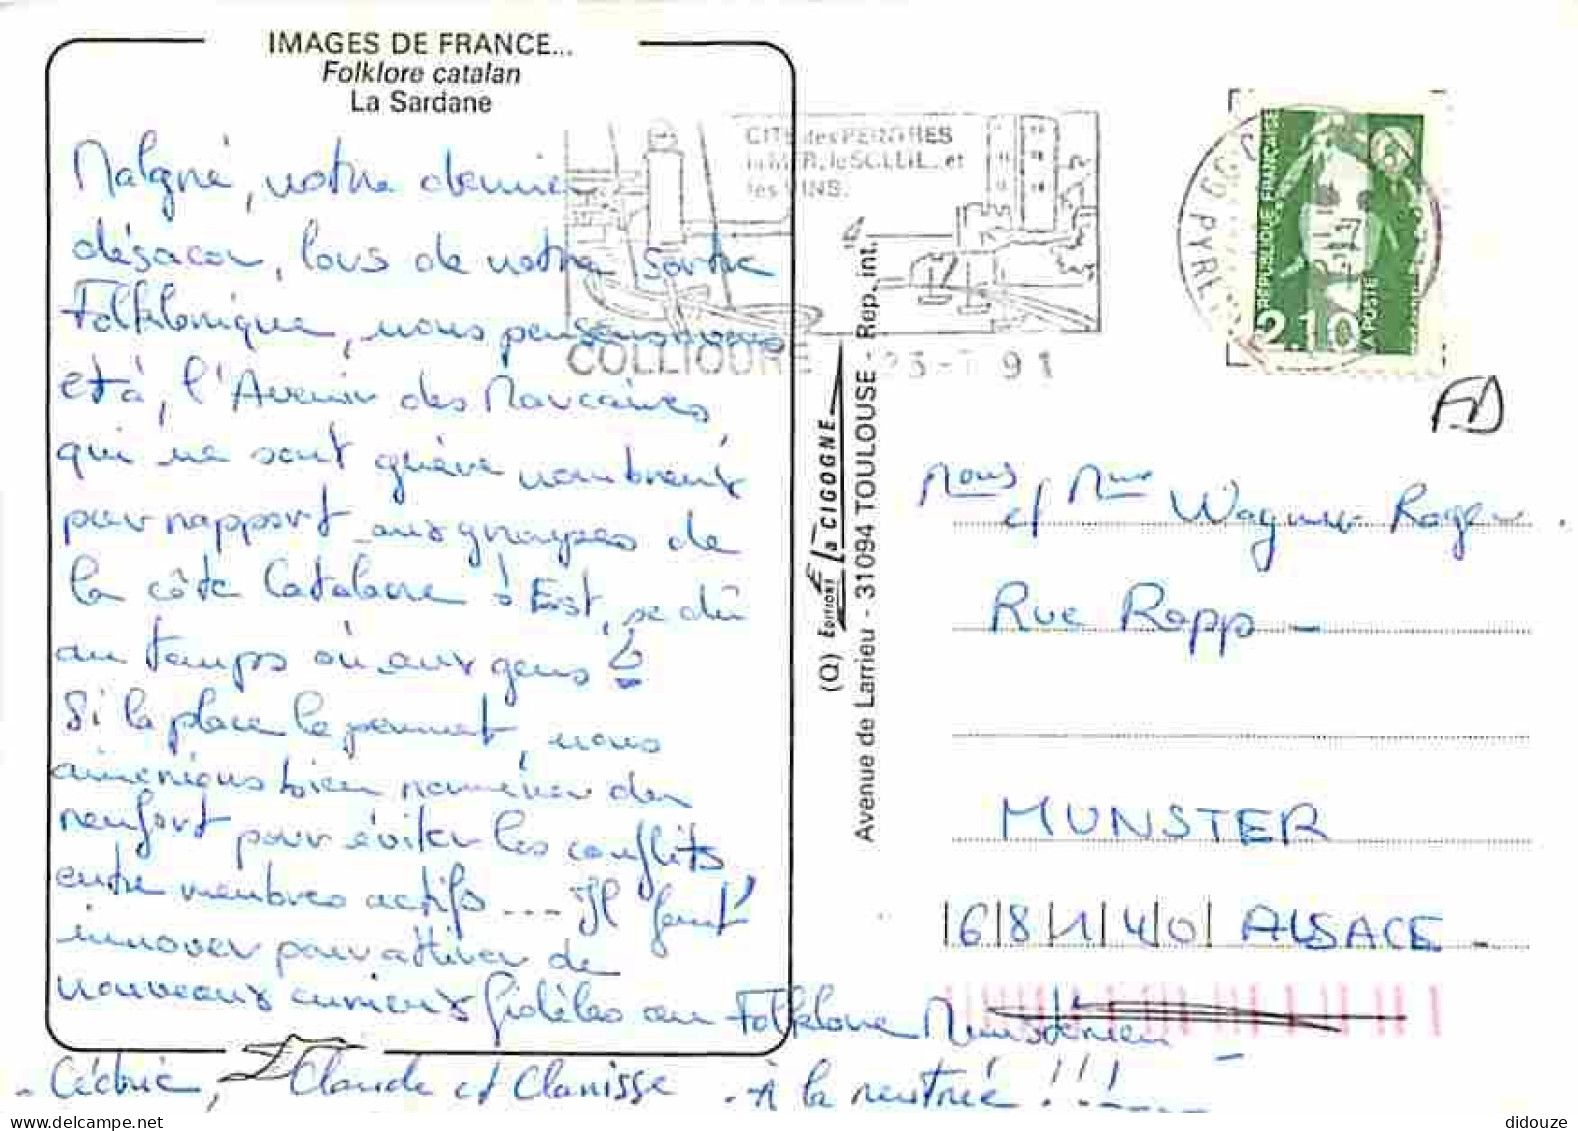 IMAGES DE FRANCE...
Folklore catalan
La Sardane
Malgré, notre dernier
désacor, lors de notre sortie
Folklorique, nous pensons vous
et à, l'Avenir des Marcaires
qui ne sont guère nombreux
par rapport aux groupes de
la côte Catalane ! Est, se dû
au temps où aux gens ?
Si la place le permet, nous
aimerions bien ramener du
renfort pour éviter les conflits
entre membres actifs .... Il faut
innover pour attirer de
nouveaux curieux fidèles au Folklore Munsterien
- Cédric, Claude et Clarisse - À la rentrée !!!
CITE des PEINTRES
la MER, le SOLEIL, et
les VINS.
COLLIOURE
91
REPUBLIQUE FRANÇAISE
2,10
LA POSTE
(Q) EDITIONS la CIGOGNE
Avenue de Larrieu - 31094 TOULOUSE - Rep. int.
et Mme Wagner Roger
Rue Rapp -
MUNSTER
68140 ALSACE -
didouze
delcampe.net